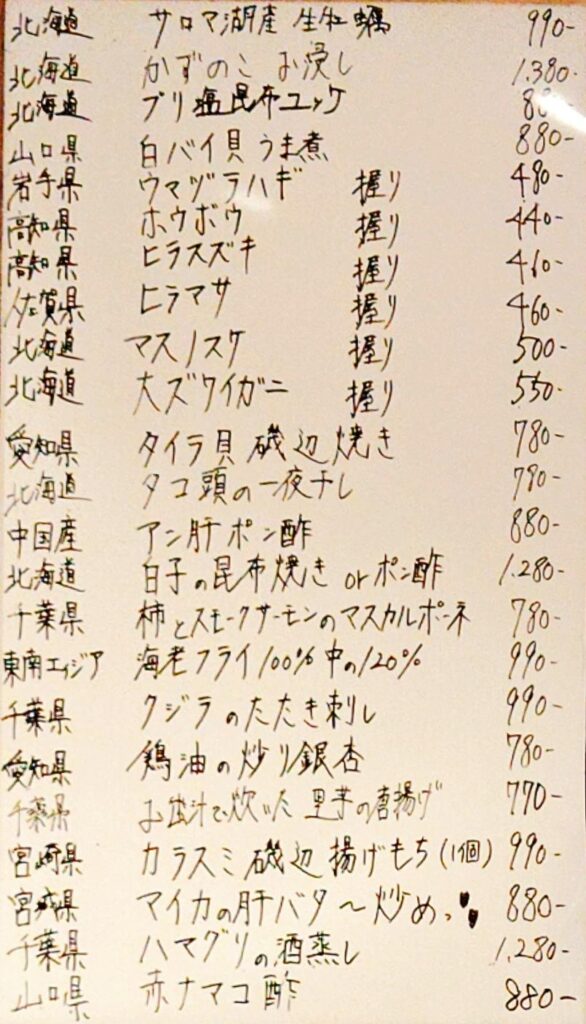 北海道 サロマ湖産 生牡蠣 990-
北海道 かずのこ お浸し 1.380-
北海道 ブリ 塩昆布ユッケ
山口県 白バイ貝 うま煮 880-
岩手県 ウマヅラハギ 握り 480-
高知県 ホウボウ 握り 440-
高知県 ヒラスズキ 握り 460-
佐賀県 ヒラマサ 握り 460-
北海道 マスノスケ 握り 500-
北海道 大ズワイガニ 握り 550-
愛知県 タイラ貝 磯辺焼き 780-
北海道 タコ頭の一夜干し 790-
中国産 アン肝ポン酢 880-
北海道 白子の昆布焼き orポン酢 1.280-
千葉県 柿とスモークサーモンのマスカルポーネ 780-
東南エイジア 海老フライ100%中の120% 990-
千葉県 クジラのたたき刺し 990-
愛知県 鶏油の炒り銀杏 780-
千葉県 お出汁で炊いた 里芋の唐揚げ 770-
宮崎県 カラスミ磯辺 揚げもち(1個) 990-
宮城県 マイカの肝バタ〜炒めっ 880-
千葉県 ハマグリの酒蒸し 1.280-
山口県 赤ナマコ酢 880-